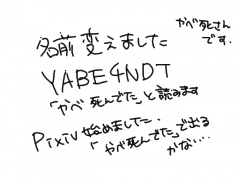 名前変えました
やべ死さん
です.
YABE4NDT
「やべ死んでた」と読みます
Pixiv始めました.
「やべ死んでた」で出る
かな…